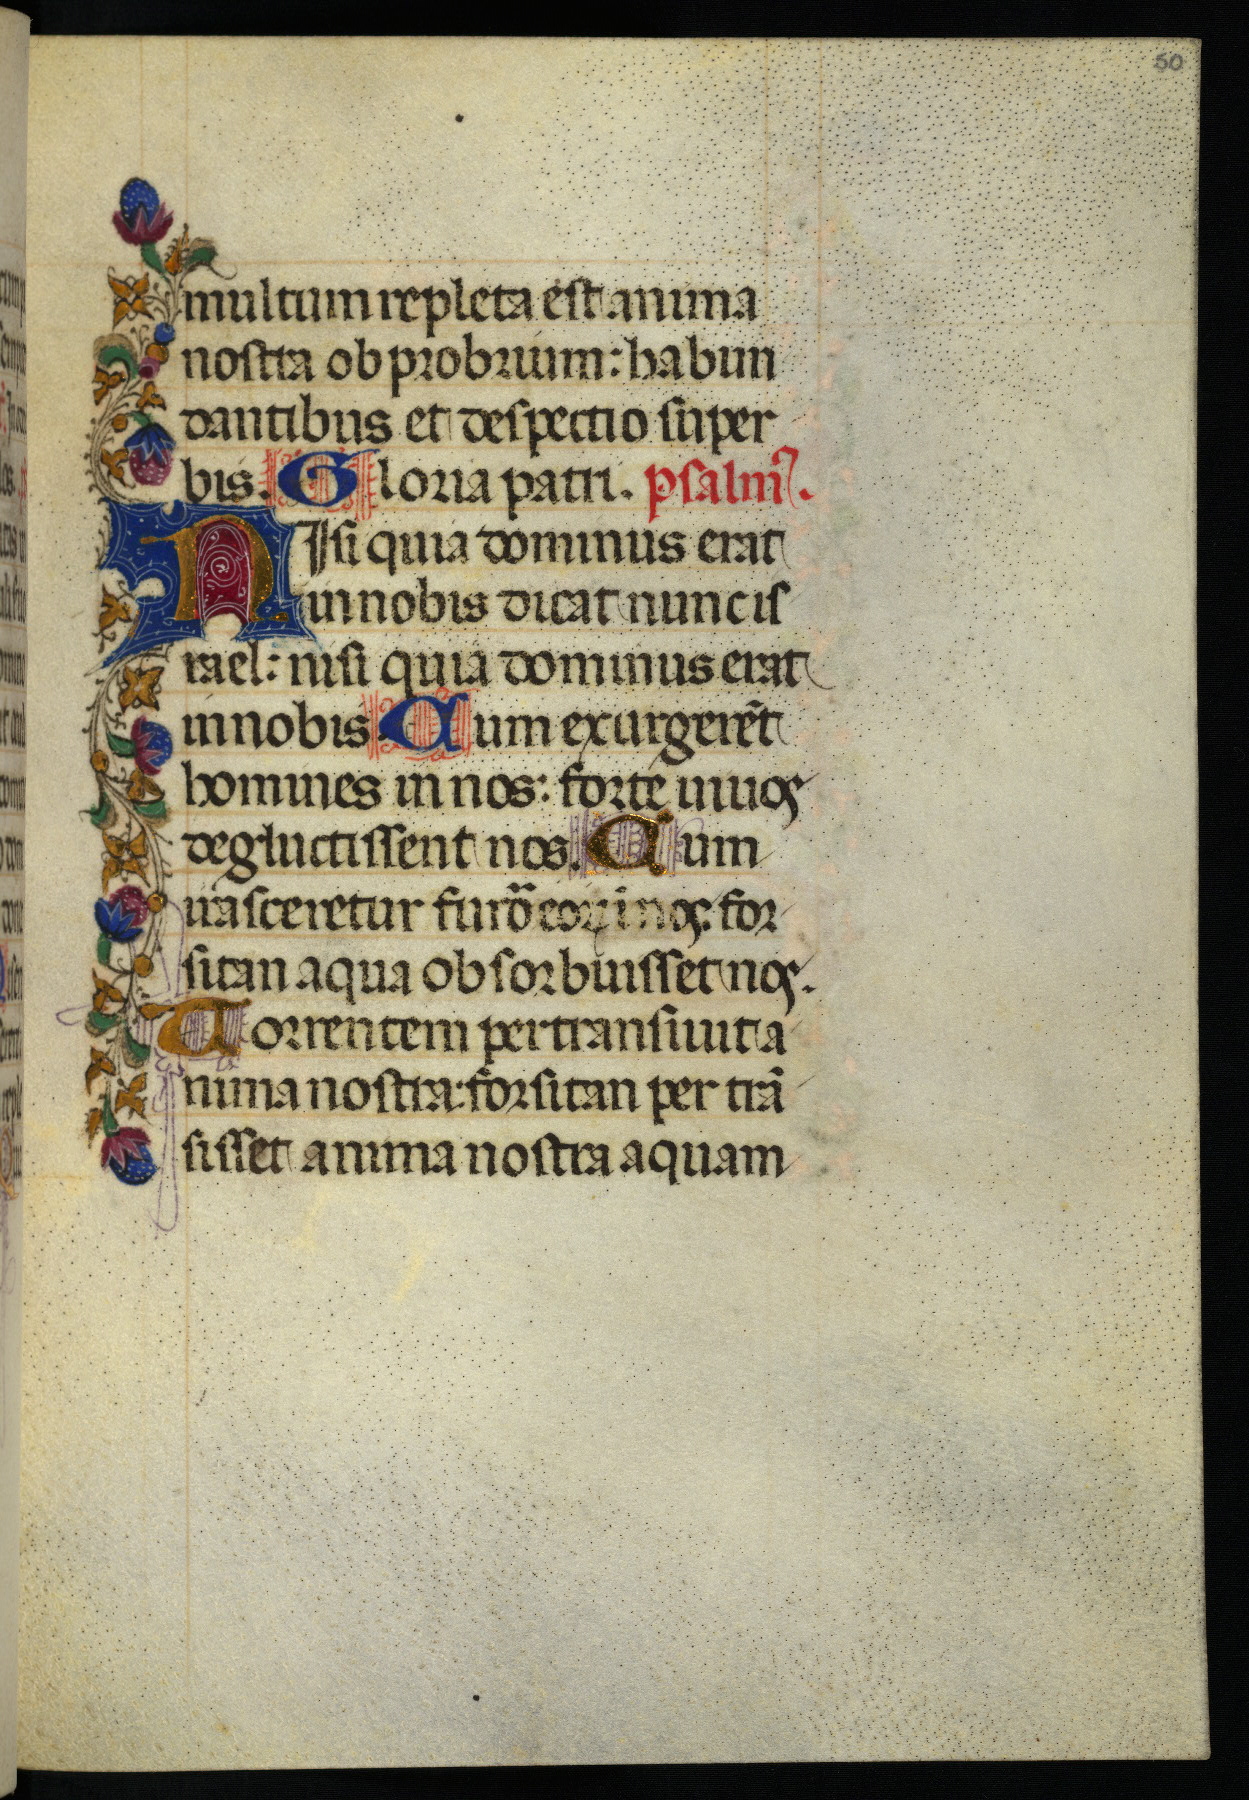 50
multum repleta est anima
nostra obprobrium: habun
dantibus et despectio super
bis. Gloria patri. psalm̃.
NIsi quia dominus erat
in nobis dicat nunc is
rael: nisi quia dominus erat
in nobis Cum exurgerēt
homines in nos: forte uiuos
degluctissent nos. Cum
irasceretur furō eoꝝ i nos: for
sitan aqua obsorbuisset nos.
Torrentem pertransiuit a
nima nostra: forsitan per trā
sisset anima nostra aquam